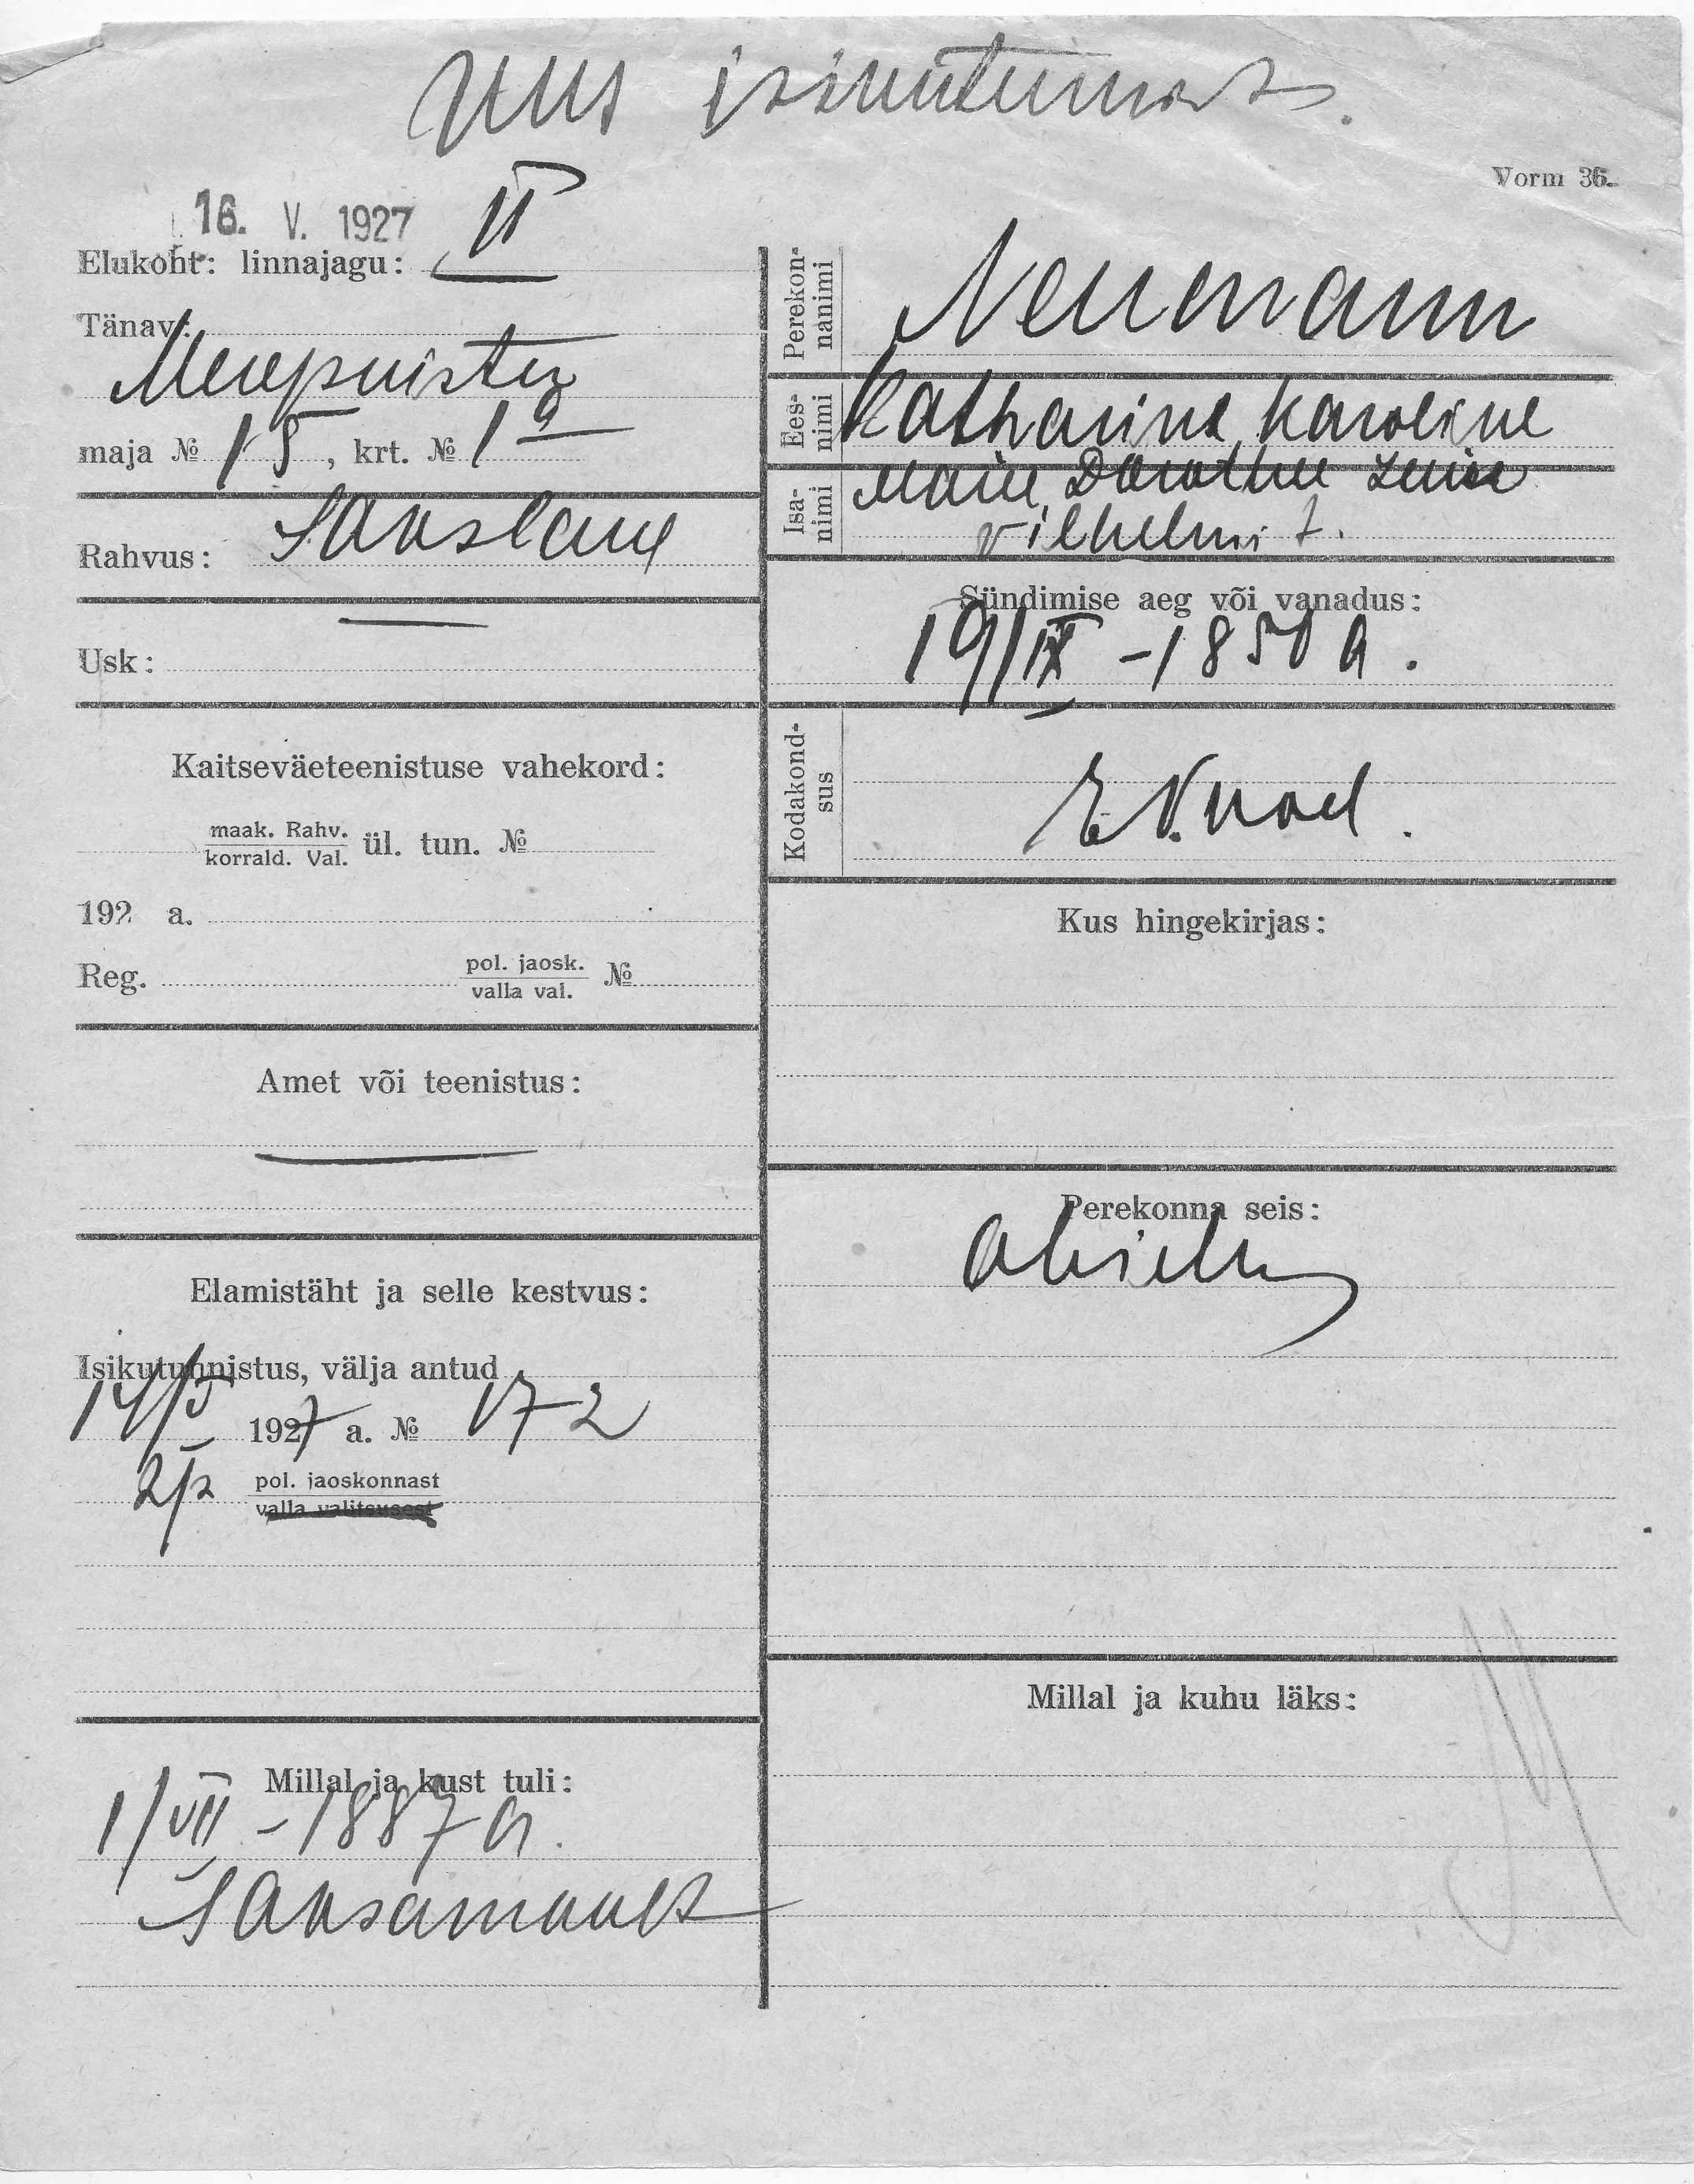 Uus isikutunnist.
Vorm 36.
16. V. 1927
Elukoht: linnajagu: II
Tänav:
Merepuiestee
maja № 15, krt. № 1
Rahvus: Sakslane
Usk: —
Kaitseväeteenistuse vahekord:
maak. Rahv.
korrald. Val. ül. tun. №
192 a.
Reg. pol. jaosk.
valla val. №
Amet või teenistus:
—
Elamistäht ja selle kestvus:
Isikutunnistus, välja antud
14/V 1927 a. № 172
2/p pol. jaoskonnast
valla valitsusest
Millal ja kust tuli:
1/VII - 1887 a.
Saksamaalt
Perekon-
nanimi
Neumann
Ees-
nimi
Katharina, Karoline
Marie, Dorothee Luise
Isa-
nimi
Vilhelmi t.
Sündimise aeg või vanadus:
19/IX - 1850 a.
Kodakond-
sus
E.V. kod.
Kus hingekirjas:
Perekonna seis:
abielus
Millal ja kuhu läks: